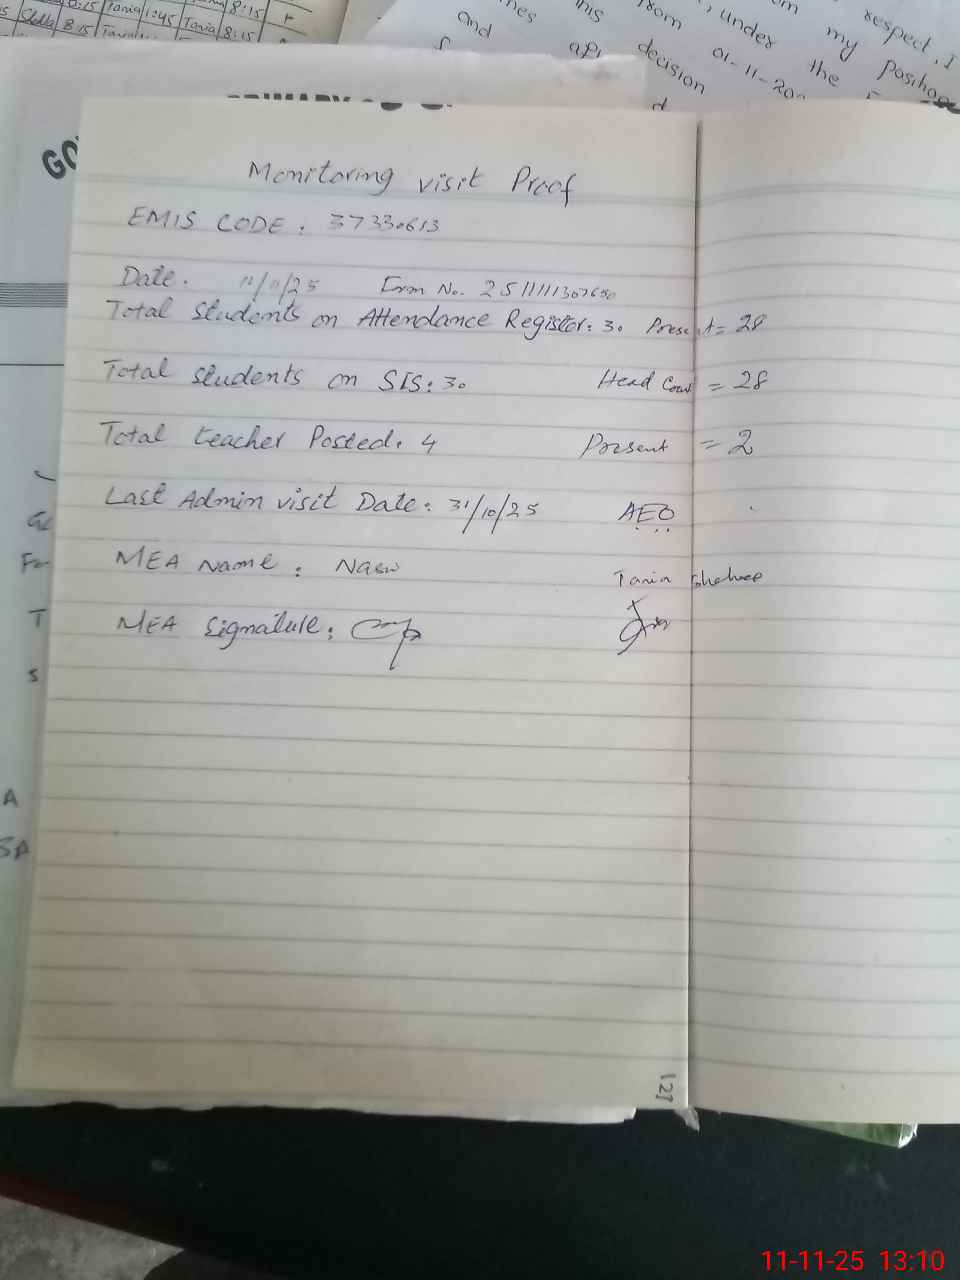 8:15 Tania 1:45 Tania 8:15
8:15 8:15
respect, I
my position
under the
from 01-11-20
decision
and
PRIMARY
GO
Monitoring visit Proof
EMIS CODE : 37330613
Date. 11/11/25 Form No. 2511111307650
Total Students on Attendance Register: 30 Present = 28
Total students on SIS: 30 Head Count = 28
Total teacher Posted. 4 Present = 2
Last Admin visit Date: 31/10/25 AEO
MEA Name : Nasir
Tania
MEA Signature:
T
S
A
SA
121
11-11-25 13:10